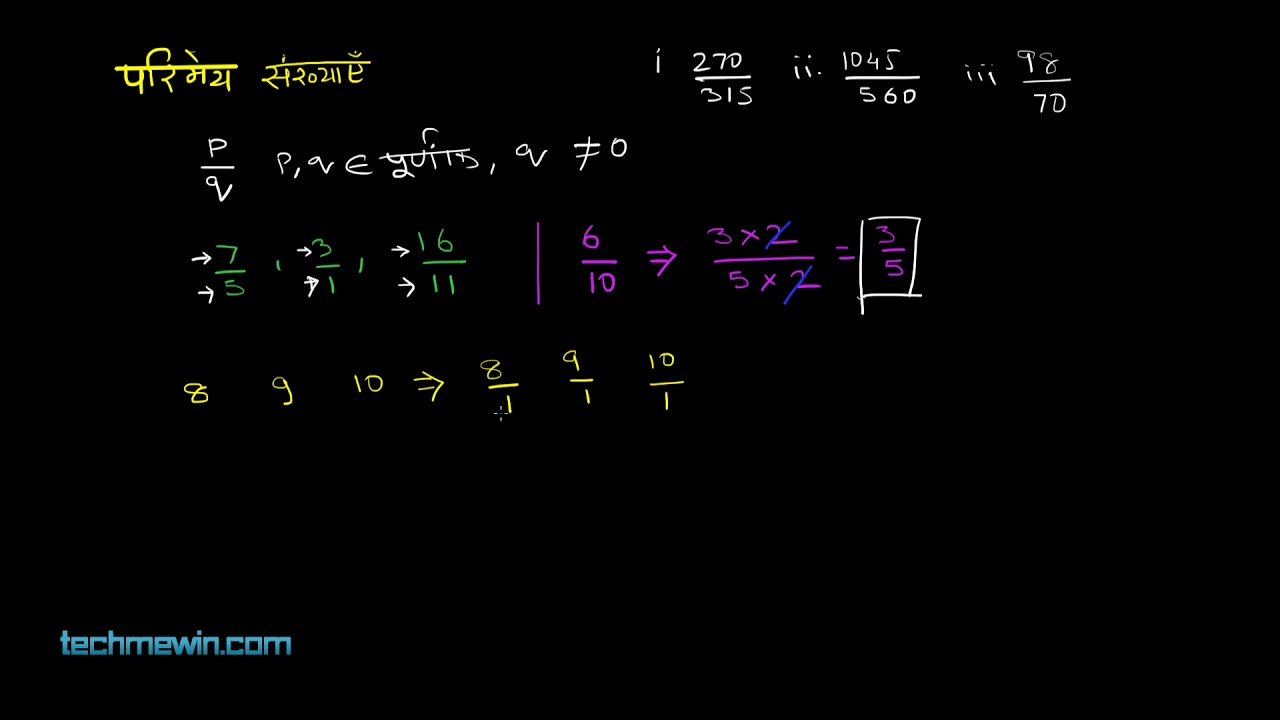 परिमेय संख्याएँ
i 270/315 ii. 1045/560 iii 98/70
p/q p, q ∈ पूर्णांक, q ≠ 0
→7/→5 , →3/→1 , →16/→11 | 6/10 ⇒ 3 × 2/5 × 2 = 3/5
8 9 10 ⇒ 8/1 9/1 10/1
techmewin.com